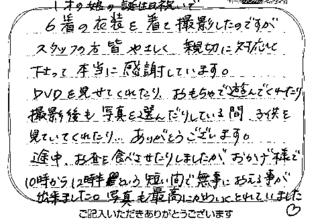 1才の娘の誕生日祝いで
6着の衣装を着て撮影したのですが
スタッフの方皆やさしく、親切に対応して
下さって本当に感謝しています。
DVDを見せてくれたり、おもちゃで遊んでくれたり
撮影後も写真を選んだりしている間、子供を
見ていてくれたり… ありがとうございます。
途中、お昼を食べさせたりしましたが、おかげ様で
10時から12時半という短い間で無事におえる事が
出来ました。写真も最高にかわいくとれていました
ご記入いただきありがとうございます